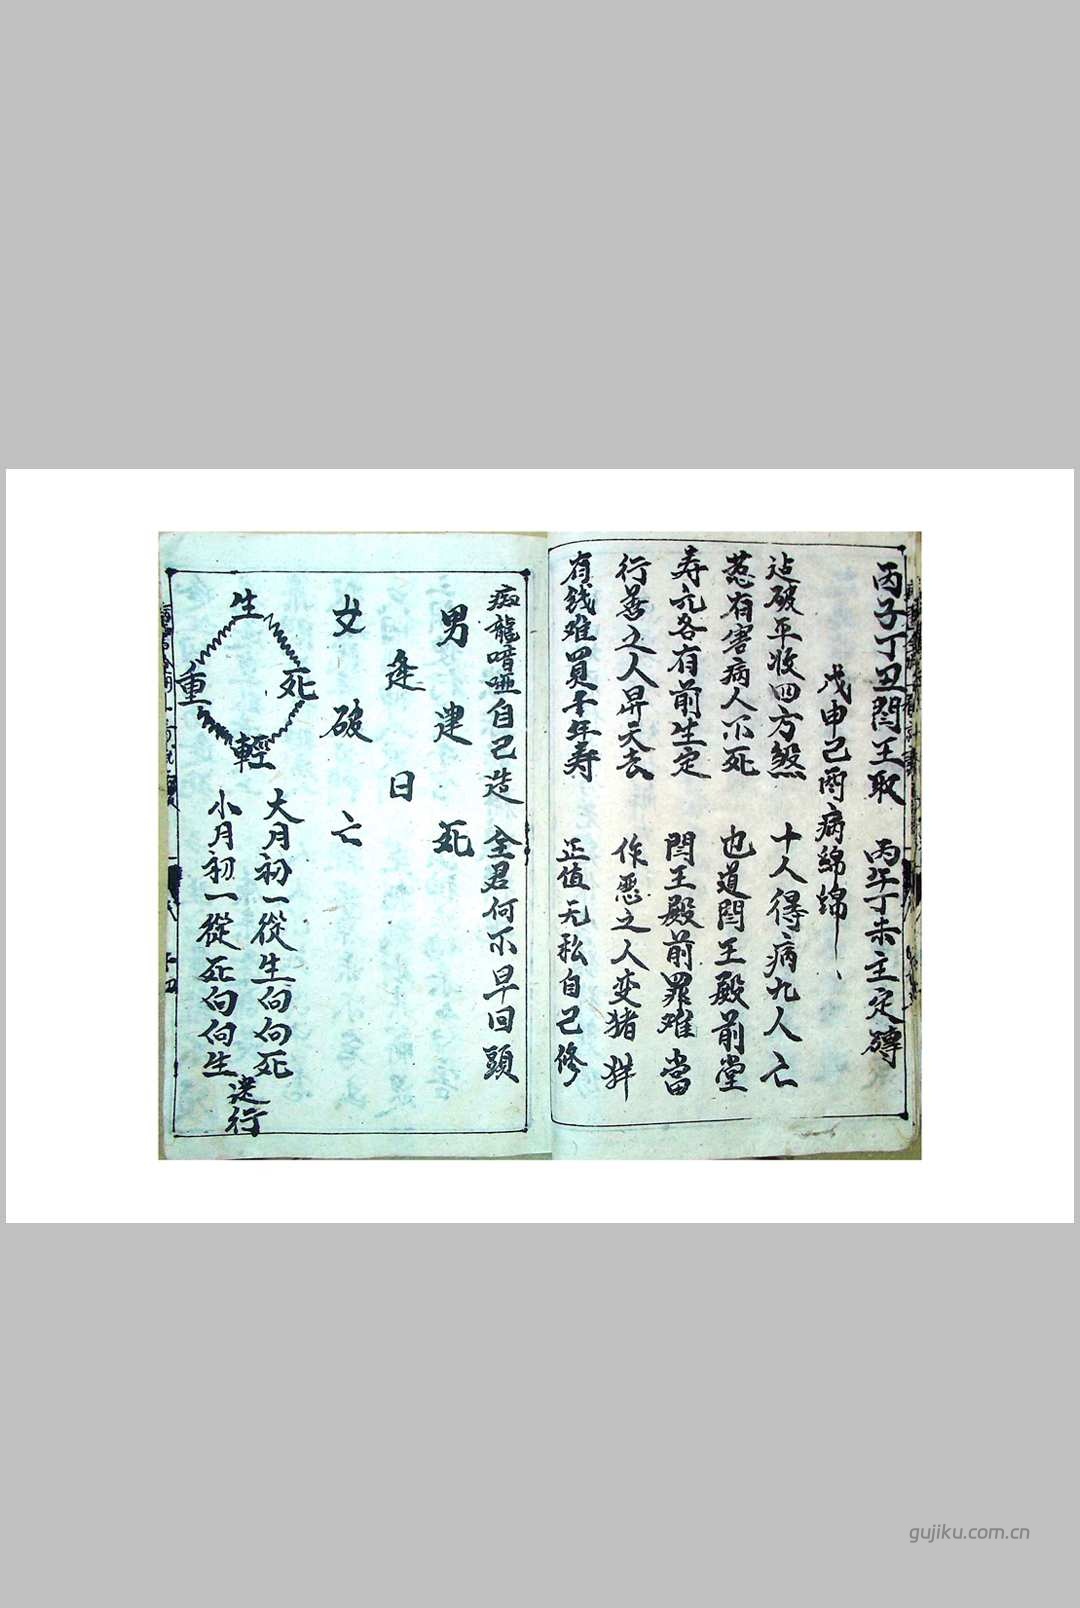 丙子丁丑閻王取　丙午丁未主定磚
戊申己酉病綿綿
迠破平收四方煞　十人得病九人亡
惹有害病人不死　也道閻王殿前堂
寿元各有前生定　閆王殿前罪难當
行善之人昇天去　作恶之人变猪牂
有钱难買千年寿　正值无私自己修
痴龍喑哑自己造　全君何不早回頭
男建死
逢日
女破亡
生
死
重
輕
大月初一從生向向死
小月初一從死向向生
逆行
gujiku.com.cn